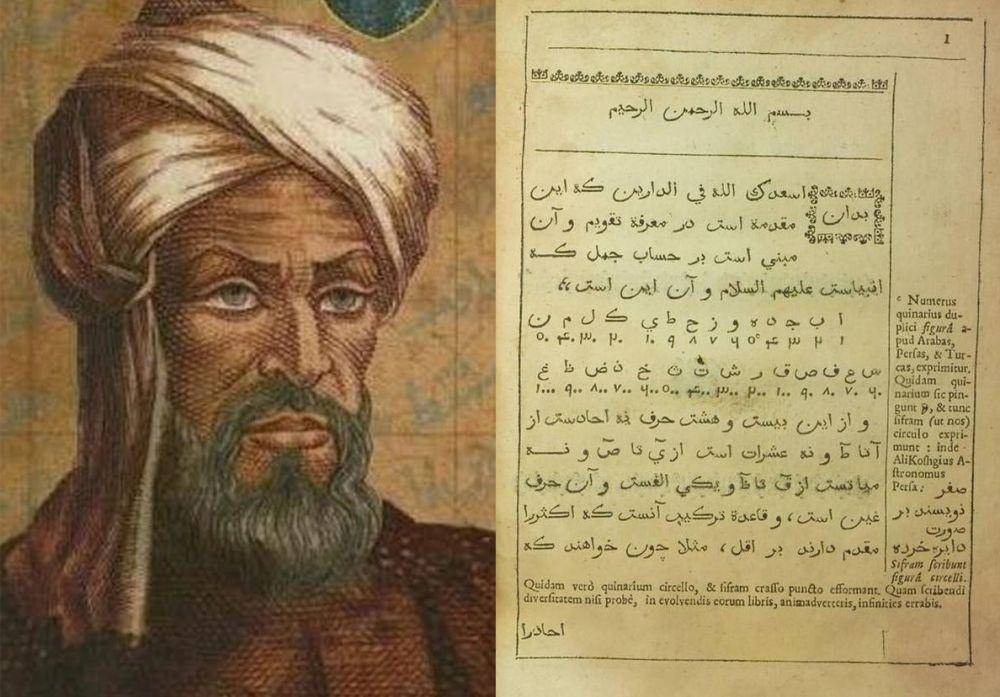 1
بسم الله الرحمن الرحيم
بدان اسعدك الله في الدارين كه اين
مقدمة است در معرفة تقويم و آن
مبني است بر حساب جمل كه
انبياست عليهم السلام و آن اين است
ا ب ج د ه و ز ح ط ي ك ل م ن
١ ٢ ٣ ۴ ٥ ٦ ٧ ٨ ٩ ١٠ ٢٠ ٣٠ ۴٠ ٥٠
س ع ف ص ق ر ش ت ث خ ذ ض ظ غ
٦٠ ٧٠ ٨٠ ٩٠ ١٠٠ ٢٠٠ ٣٠٠ ۴٠٠ ٥٠٠ ٦٠٠ ٧٠٠ ٨٠٠ ٩٠٠ ١٠٠٠
و از اين بيست و هشت حرف نه احادست از
آ تا ط و نه عشرات است از ي تا ص و نه
مياتست از ق تا ظ و يكي الفست و آن حرف
غين است، و قاعدة تركيب آنست كه اكثررا
مقدم دارند بر اقل، مثلا چون خواهند كه
c Numerus
quinarius du-
plici figurâ a-
pud Arabas,
Persas, & Tur-
cas, exprimitur.
Quidam qui-
narium sic pin-
gunt & tunc
sifram (ut nos)
circulo expri-
munt: inde
Ali Koshgius A-
stronomus
Persa: صفر
نويسند بر
صورت
دايره خرده
Sifram scribunt
figurâ circelli.
Quidam verò quinarium circello, & sifram crasso puncto efformant. Quam scribendi
diversitatem nisi probè, in evolvendis eorum libris, animadverteris, infinities errabis.
احادرا